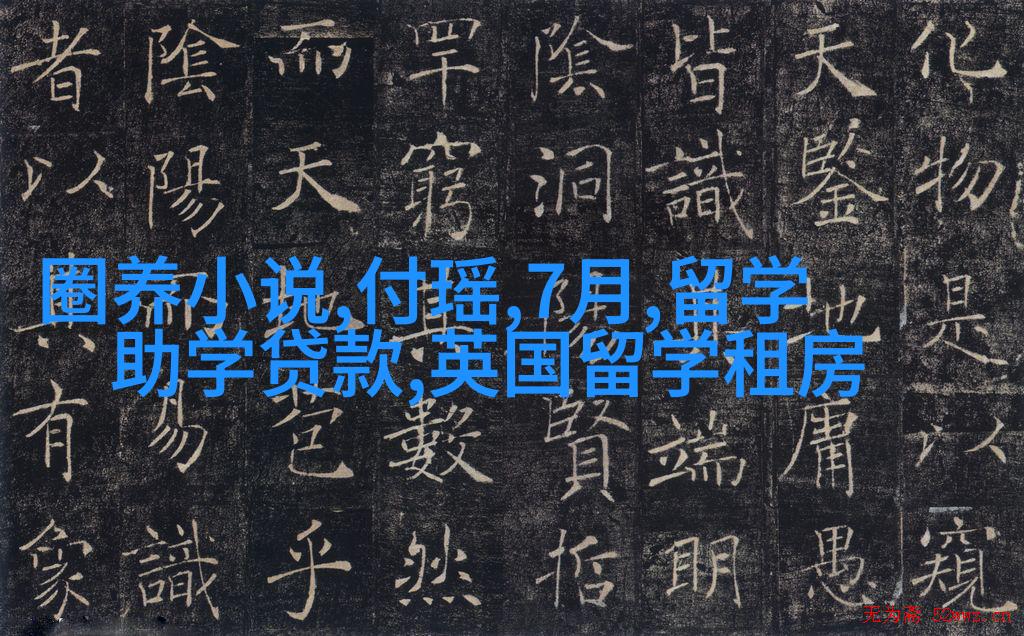 化物是以窺
天鑒地庸愚
皆識其端明
陰洞陽賢哲
罕窮其數然
而天地苞乎
陰陽而易識
者以其有象
圈养小说,付瑶,7月,留学
助学贷款,英国留学租房
无为斋 52wwz.cn